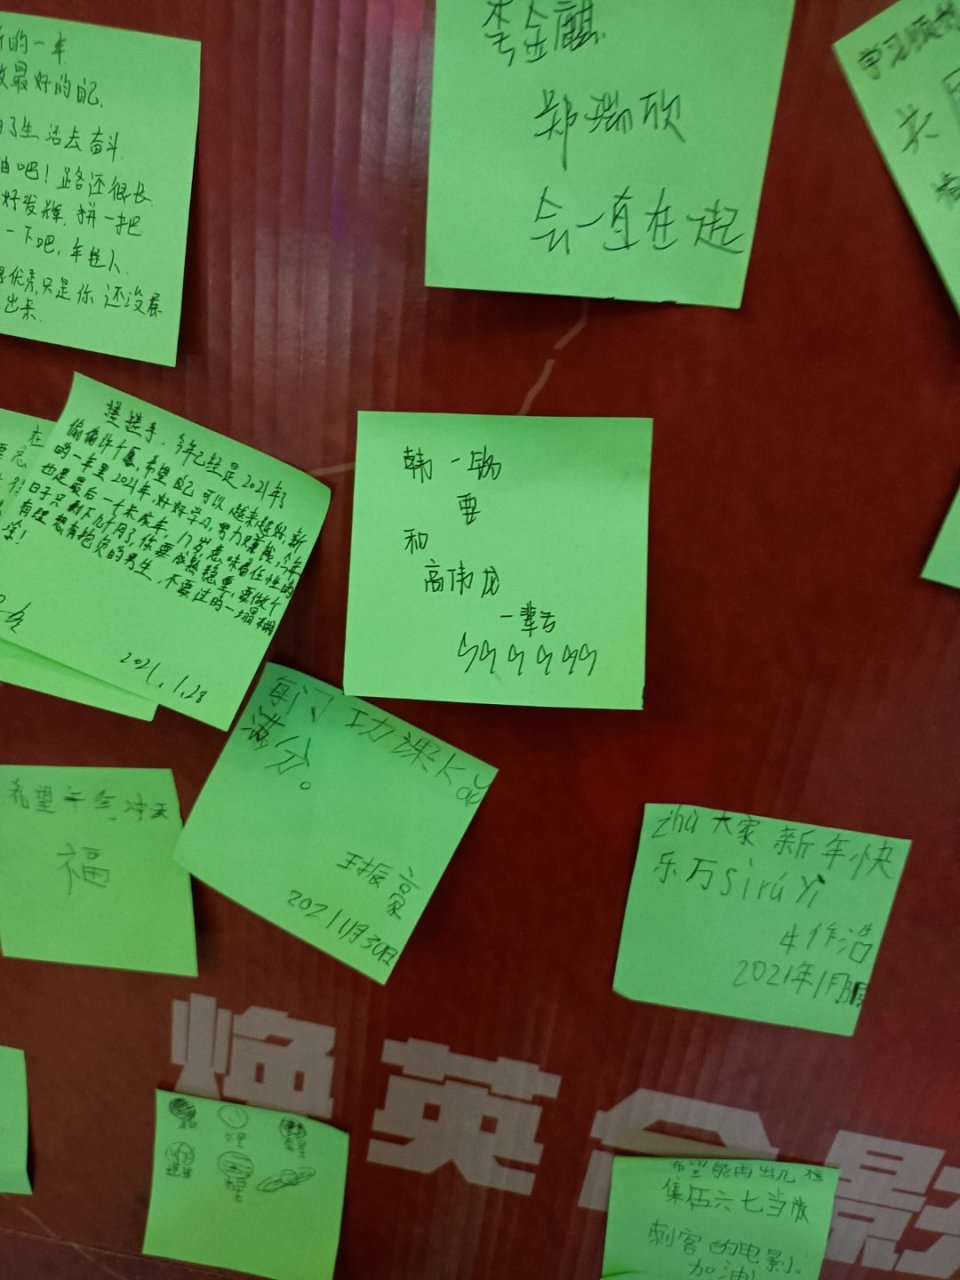 的一年
最好的自己.
了生活去奋斗.
吧！路还很长
好发挥.拼一把
一下吧,年轻人.
只是你还没展
出来.
李金麒
郑瑞欣
会一直在一起
学习
今年已经是2021年了
偷偷许个愿,希望自己可以越来越好,新
的一年里2021年,好好学习,努力赚钱,今年
也是最后一个未成年,17岁意味着任性的
日子只剩下几个月了,你要成熟稳重,要做个
有理想有抱负的男生,不要过的一塌糊
涂!
2021.1.28
韩一
要
和
高伟龙
一辈子
每门功课
满分。
王振豪
2021 1月30日
希望牛气冲天
福
zhù大家新年快
乐万sìrúyì
牛作浩
2021年1月
焕英
影
希望能再出几
集伍六七当做
刺客的电影.
加油!